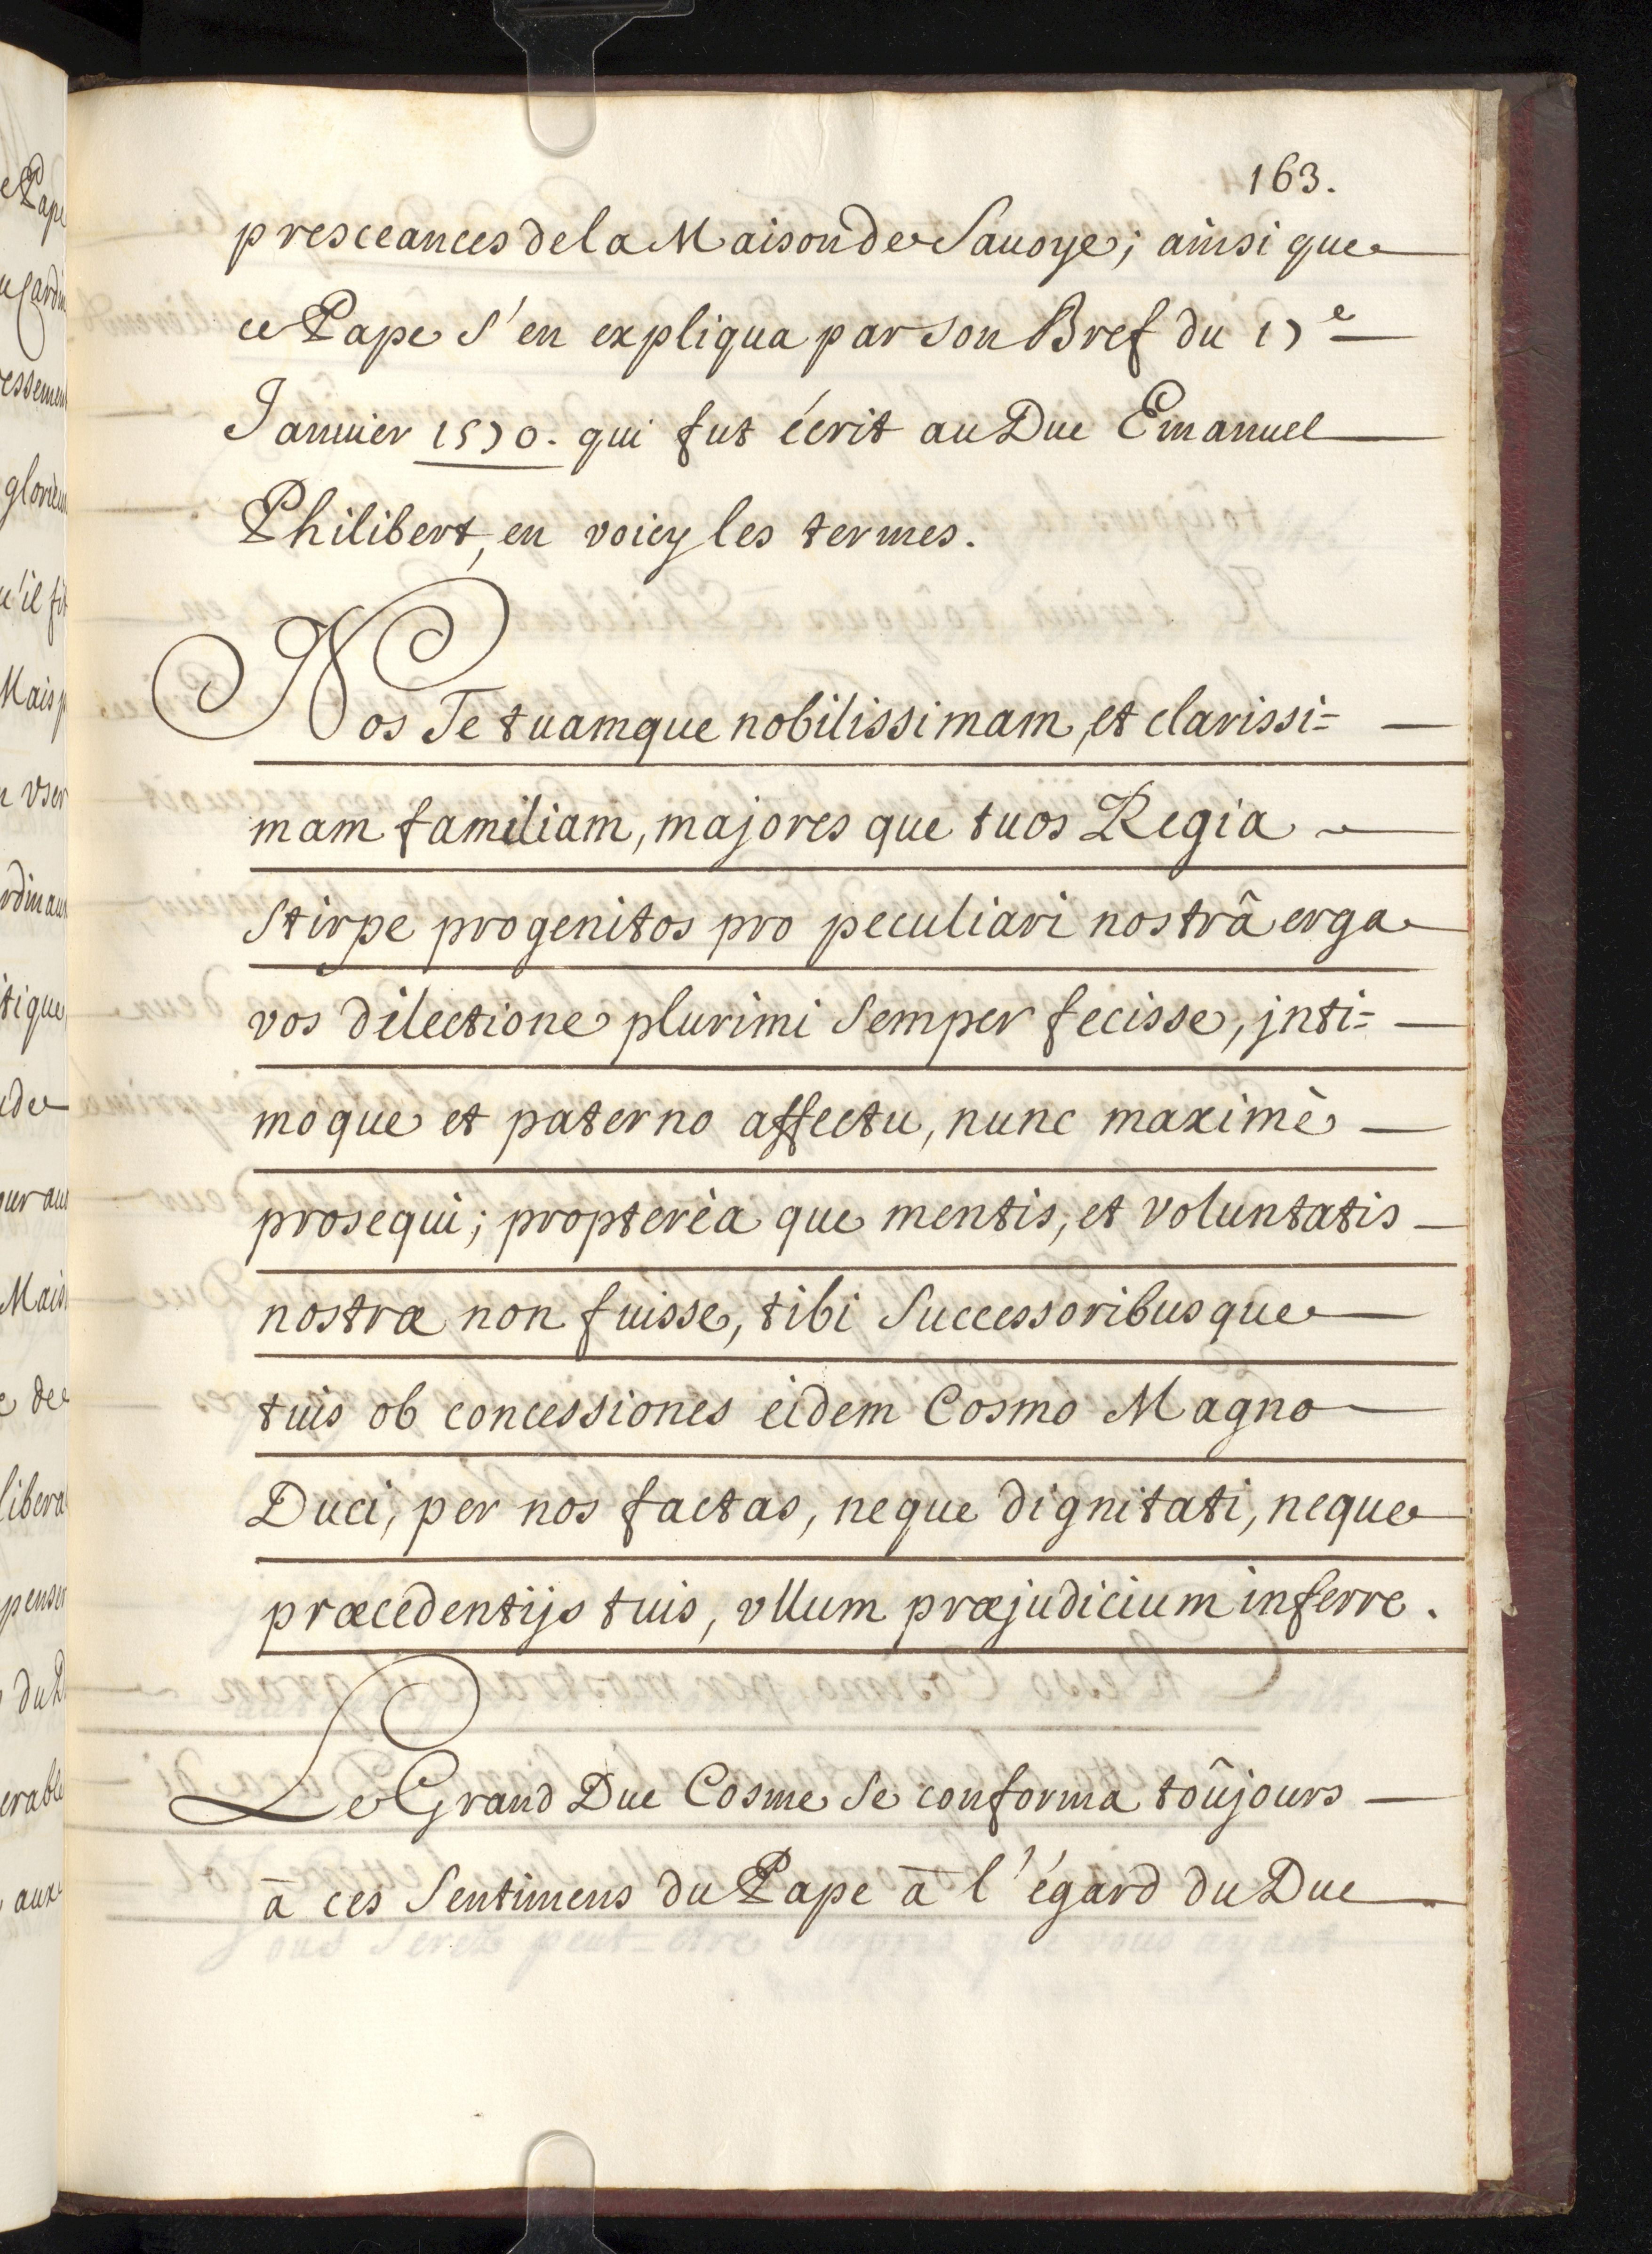 163.
presceances de la Maison de Sauoye; ainsi que
ce Pape s'en expliqua par son Bref du 17e
Januier 1570. qui fut écrit au Duc Emanuel
Philibert, en voicy les termes.
Nos Te tuamque nobilissimam, et clarissi=
mam familiam, majores que tuos Regia
Stirpe progenitos pro peculiari nostrâ erga
vos dilectione plurimi Semper fecisse, jnti=
moque et paterno affectu, nunc maximè
prosequi; proptereà que mentis, et voluntatis
nostræ non fuisse, tibi Successoribusque
tuis ob concessiones eidem Cosmo Magno
Duci, per nos factas, neque dignitati, neque
præcedentijs tuis, vllum præjudicium inferre.
Le Grand Duc Cosme Se conforma toûjours
à ces Sentimens du Pape à l'égard du Duc